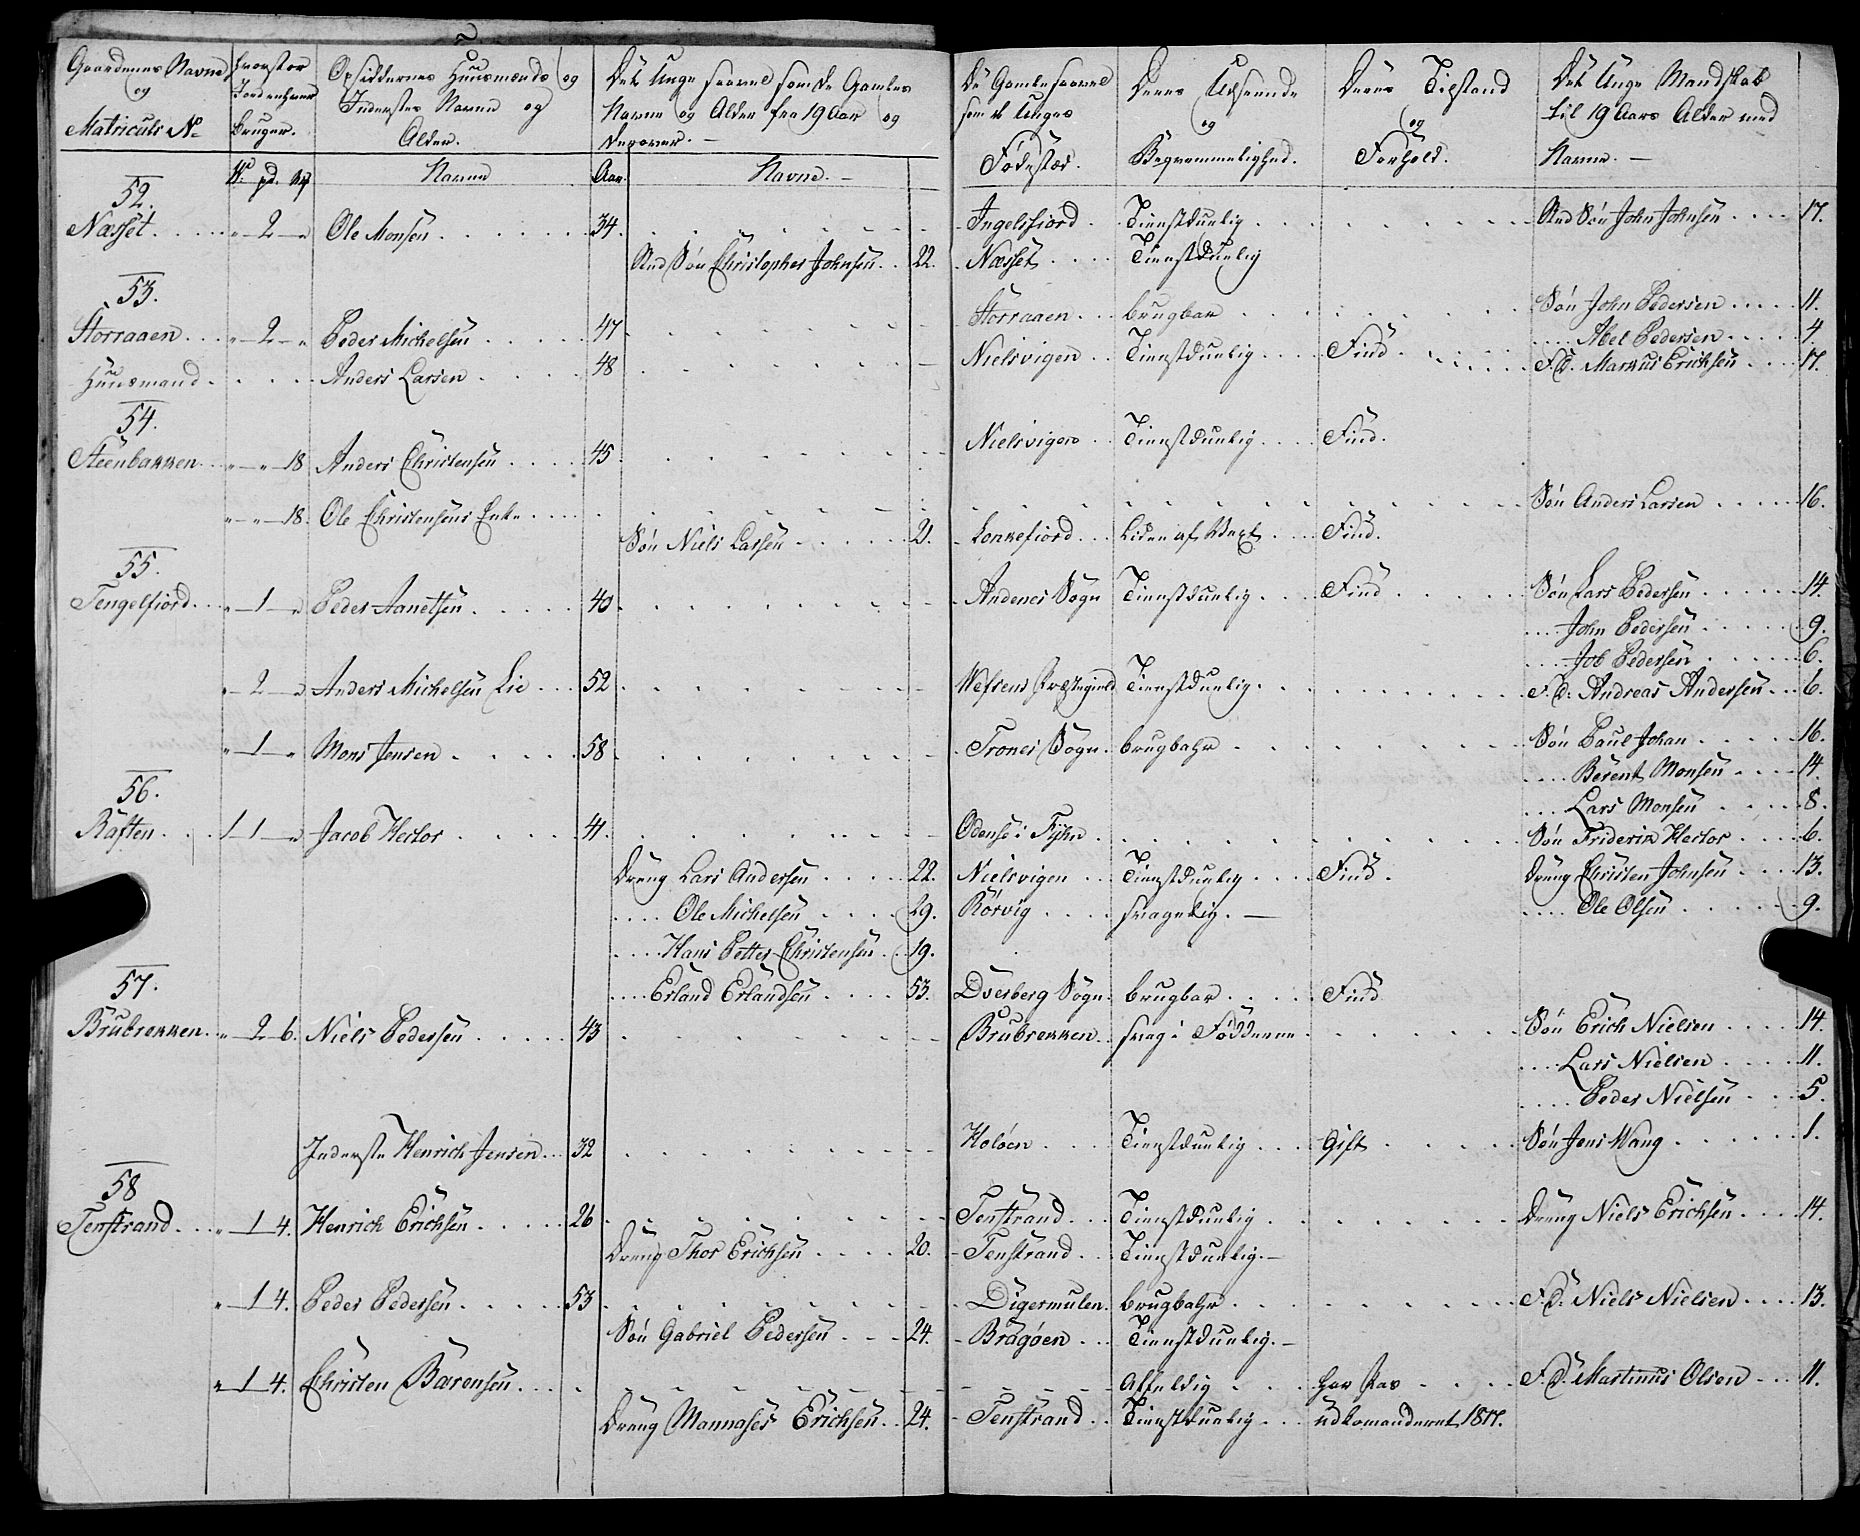 Gaardenes Navne
og
Matriculs No
Hvorstor
Jord enhver
bruger.
Opsiddernes Huusmænds og
Inderstes Navne og
Alder.
Det Unge saavel som de Gamles
Navne og Alder fra 19 Aar og
derover. —
De Gamle saavel
som de Unges
Fødested.
Deres Udseende
og
Beqvemmelighed.
Deres Tilstand
og
Forhold.
Det Unge Mandskab
til 19 Aars Alder med
Navne. —
W. pd. Mk Navne Aar. Navne. —
52.
Næsset " 2 " Ole Monsen 34 Ingelsfiord Tienstduelig Søn John Johnsen 17.
Søn Christopher Johnsen 22. Næsset Tienstduelig
53.
Storraaen " 2 " Peder Michelsen 47 Storraaen brugbar Søn John Pedersen 11.
Abel Pedersen 4.
Huusmand Anders Larsen 48 Nielsvigen Tienstduelig Find F.d. Markus Erichsen 17.
54.
Steenbakken " " 18 Anders Christensen 45 Nielsvigen Tienstduelig Find.
" " 18. Ole Christensens Enke Søn Anders Larsen 16.
Søn Niels Larsen 21. Lonkefiord Liden af Vext Find.
55.
Tengelfiord " 1 " Peder Aanetsen 40 Andenes Sogn Tienstduelig Find Søn Lars Pedersen 14.
John Pedersen 9.
Job Pedersen 6.
" 2 " Anders Michelsen Lie 52 Wefsens Præstegield Tienstduelig F.d. Andreas Andersen 6.
" 1 " Mons Jensen 58 Trones Sogn brugbahr Søn Paul Johan 16.
Berent Monsen 14.
Lars Monsen 8.
56.
Raften 1 1 " Jacob Hector 41. Odense i Fyhn Søn Friderik Hector 6.
Dreng Lars Andersen 22. Nielsvigen Tienstduelig Find. Dreng Christen Johnsen 13.
Ole Michelsen 29. Rörvig svagelig. — Ole Olsen 9.
Hans Petter Christensen 19.
Erland Erlandsen 53. Dverberg Sogn brugbar Find
57.
Brubrekken " 2 6. Niels Pedersen 43 Brubrekken svag i Födderne Søn Erich Nielsen 14.
Lars Nielsen 11.
Peder Nielsen 5.
Inderste Henrich Jensen 32 Holöen Tienstduelig Gift Søn Jens Wang 1.
58
Tenstrand " 1 4. Henrich Erichsen 26 Tenstrand Tienstduelig Dreng Niels Erichsen 14.
Dreng Thor Erichsen 20. Tenstrand Tienstduelig. —
" 1 4. Peder Pedersen 53 Digermulen brugbahr F.d. Niels Nielsen 13.
Søn Gabriel Pedersen 24. Bragöen Tienstduelig. —
" 1 4. Christen Bærensen Affældig har Pas F.d. Martinus Olsen 11.
Dreng Mannases Erichsen 24. Tenstrand Tienstduelig udkomanderet 1817.